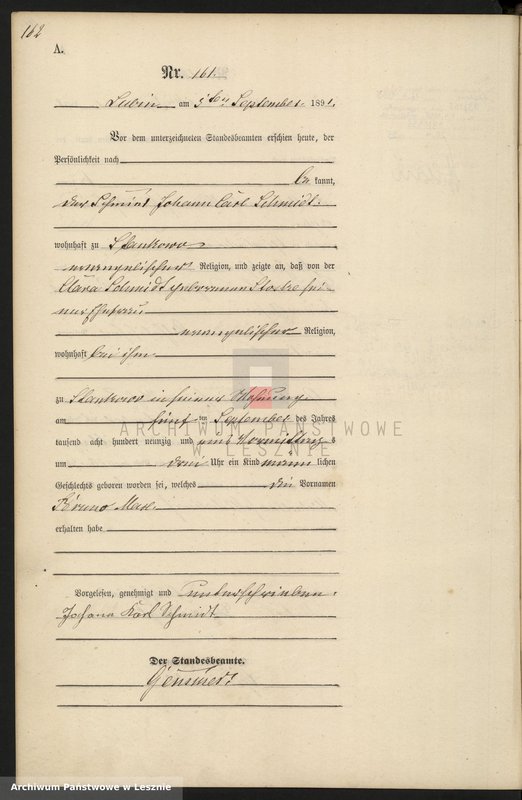 162
A.
Nr. 161.
Lubin am 5ten September 1891.
Vor dem unterzeichneten Standesbeamten erschien heute, der
Persönlichkeit nach
be kannt,
der Schmied Johann Carl Schmidt
wohnhaft zu Stankowo
evangelischer Religion, und zeigte an, daß von der
Clara Schmidt geborenen
ner Ehefrau
evangelischer Religion,
wohnhaft bei ihm
zu Stankowo in seiner Wohnung
am fünf ten September des Jahres
tausend acht hundert neunzig und eins Vormittag s
um drei Uhr ein Kind männ lichen
Geschlechts geboren worden sei, welches den Vornamen
Bruno Max
erhalten habe
Vorgelesen, genehmigt und unterschrieben.
Johann Karl Schmidt
Der Standesbeamte.
ARCHIWUM PAŃSTWOWE
W LESZNIE
Archiwum Państwowe w Lesznie